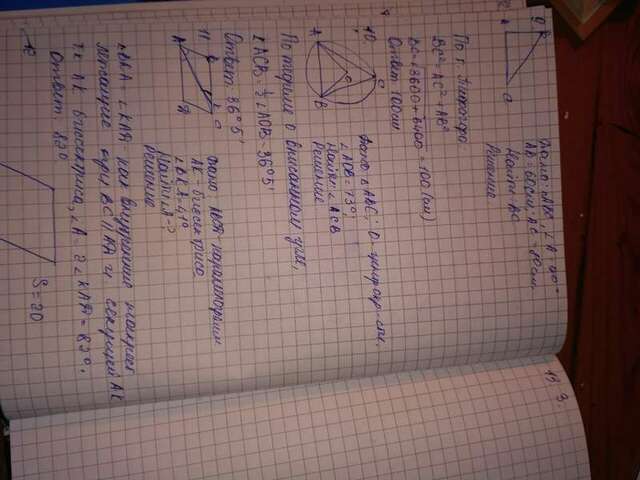 9.
B
A
C
Дано: ΔABC, ∠A = 90°
AB = 60см, AC = 80см.
Найти: BC
Решение.
По т. Пифагора
BC² = AC² + AB²
BC = √3600 + 6400 = 100 (см)
Ответ: 100см
10.
A
B
C
O
Дано: ΔABC; O - центр окр-сти.
∠AOB = 73°;
Найти: ∠ACB
Решение
По теореме о вписанном угле,
∠ACB = ½ ∠AOB = 36°5'
Ответ: 36°5'
11
A
B
Дано:
параллелограмм
AK - биссектриса
∠BKA = 41°
Найти: ∠A - ?
Решение
∠BKA = ∠KAD как внутренние накрест
лежащие при BC || AD и секущей AK
т.к AK биссектриса, ∠A = 2∠KAD = 82°.
Ответ: 82°
12
S = 20
13 3.